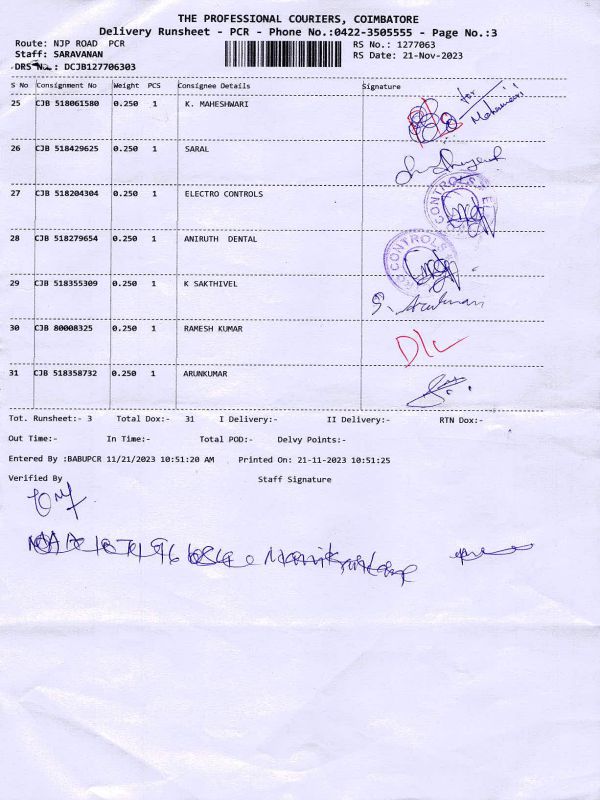 THE PROFESSIONAL COURIERS, COIMBATORE
Delivery Runsheet - PCR - Phone No.:0422-3505555 - Page No.:3
Route: NJP ROAD PCR RS No.: 1277063
Staff: SARAVANAN RS Date: 21-Nov-2023
DRS No.: DCJB127706303
S No Consignment No Weight PCS Consignee Details Signature
25 CJB 518061580 0.250 1 K. MAHESHWARI for
26 CJB 518429625 0.250 1 SARAL
27 CJB 518204304 0.250 1 ELECTRO CONTROLS CONTROLS
28 CJB 518279654 0.250 1 ANIRUTH DENTAL CONTROLS
29 CJB 518355309 0.250 1 K SAKTHIVEL
30 CJB 80008325 0.250 1 RAMESH KUMAR D/L
31 CJB 518358732 0.250 1 ARUNKUMAR
Tot. Runsheet:- 3 Total Dox:- 31 I Delivery:- II Delivery:- RTN Dox:-
Out Time:- In Time:- Total POD:- Delvy Points:-
Entered By :BABUPCR 11/21/2023 10:51:20 AM Printed On: 21-11-2023 10:51:25
Verified By Staff Signature